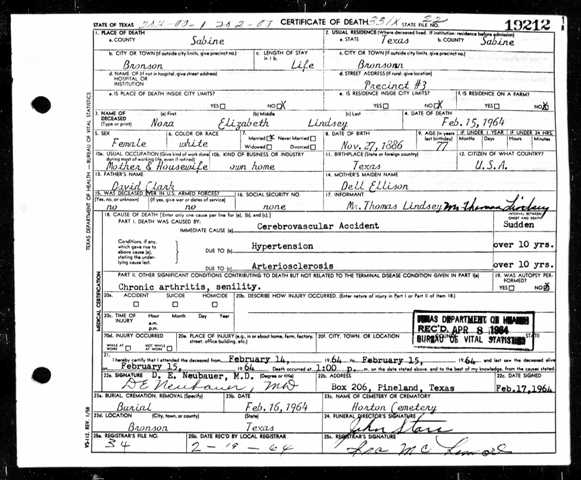 STATE OF TEXAS CERTIFICATE OF DEATH STATE FILE NO. 19212
1. PLACE OF DEATH 2. USUAL RESIDENCE (Where deceased lived. If institution: residence before admission)
a. COUNTY Sabine a. STATE Texas b. COUNTY Sabine
b. CITY OR TOWN (If outside city limits, give precinct no.) c. LENGTH OF STAY in 1 b. c. CITY OR TOWN (If outside city limits, give precinct no.)
Bronson Life Bronson
d. NAME OF (If not in hospital, give street address) HOSPITAL OR INSTITUTION d. STREET ADDRESS (If rural, give location)
Precinct #3
e. IS PLACE OF DEATH INSIDE CITY LIMITS? e. IS RESIDENCE INSIDE CITY LIMITS? f. IS RESIDENCE ON A FARM?
YES NO X YES NO X YES NO X
3. NAME OF DECEASED (Type or print) (a) First (b) Middle (c) Last 4. DATE OF DEATH
Nora Elizabeth Lindsey Feb. 15, 1964
5. SEX 6. COLOR OR RACE 7. Married X Never Married Widowed Divorced 8. DATE OF BIRTH 9. AGE IF UNDER 1 YEAR IF UNDER 24 HRS.
Female white Nov. 27, 1886 77 Months Days Hours Min.
10a. USUAL OCCUPATION (Give kind of work done during most of working life, even if retired) 10b. KIND OF BUSINESS OR INDUSTRY 11. BIRTHPLACE (State or foreign country) 12. CITIZEN OF WHAT COUNTRY?
Mother & Housewife own home Texas U.S.A.
13. FATHER'S NAME 14. MOTHER'S MAIDEN NAME
David Clark Dell Ellison
15. WAS DECEASED EVER IN U.S. ARMED FORCES? 16. SOCIAL SECURITY NO. 17. INFORMANT
(Yes, no, or unknown) (If yes, give war or dates of service)
no no none Mr. Thomas Lindsey
18. CAUSE OF DEATH (Enter only one cause per line for (a), (b), and (c).) INTERVAL BETWEEN ONSET AND DEATH
PART I. DEATH WAS CAUSED BY:
IMMEDIATE CAUSE (a) Cerebrovascular Accident Sudden
Conditions, if any, which gave rise to above cause (a), stating the underlying cause last.
DUE TO (b) Hypertension over 10 yrs.
DUE TO (c) Arteriosclerosis over 10 yrs.
PART II. OTHER SIGNIFICANT CONDITIONS CONTRIBUTING TO DEATH BUT NOT RELATED TO THE TERMINAL DISEASE CONDITION GIVEN IN PART I(a) 19. WAS AUTOPSY PERFORMED?
Chronic arthritis, senility. YES NO X
20a. ACCIDENT SUICIDE HOMICIDE 20b. DESCRIBE HOW INJURY OCCURRED. (Enter nature of injury in Part I or Part II of item 18.)
20c. TIME OF INJURY Hour Month Day Year a.m. p.m.
TEXAS DEPARTMENT OF HEALTH
REC'D APR 8 1964
BUREAU OF VITAL STATISTICS
20d. INJURY OCCURRED WHILE AT WORK NOT WHILE AT WORK 20e. PLACE OF INJURY (e.g. in or about home, farm, factory, street, office building, etc.) 20f. CITY, TOWN, OR LOCATION COUNTY STATE
21. I hereby certify that I attended the deceased from February 14, 1964 to February 15, 1964 and last saw the deceased alive
February 15, 1964 Death occurred at 1:00 p. m. on the date stated above, and to the best of my knowledge, from the causes stated.
22a. SIGNATURE D. E. Neubauer, M.D. (Degree or title) 22b. ADDRESS 22c. DATE SIGNED
D E Neubauer, MD Box 206, Pineland, Texas Feb.17,1964
23a. BURIAL, CREMATION, REMOVAL (Specify) 23b. DATE 23c. NAME OF CEMETERY OR CREMATORY
Burial Feb. 16, 1964 Horton Cemetery
23d. LOCATION (City, town, or county) (State) 24. FUNERAL DIRECTOR'S SIGNATURE
Bronson Texas John Starr
25a. REGISTRAR'S FILE NO. 25b. DATE REC'D BY LOCAL REGISTRAR 25c. REGISTRAR'S SIGNATURE
34 2-19-64
TEXAS DEPARTMENT OF HEALTH — BUREAU OF VITAL STATISTICS
MEDICAL CERTIFICATION
VS-112 REV. 1/58